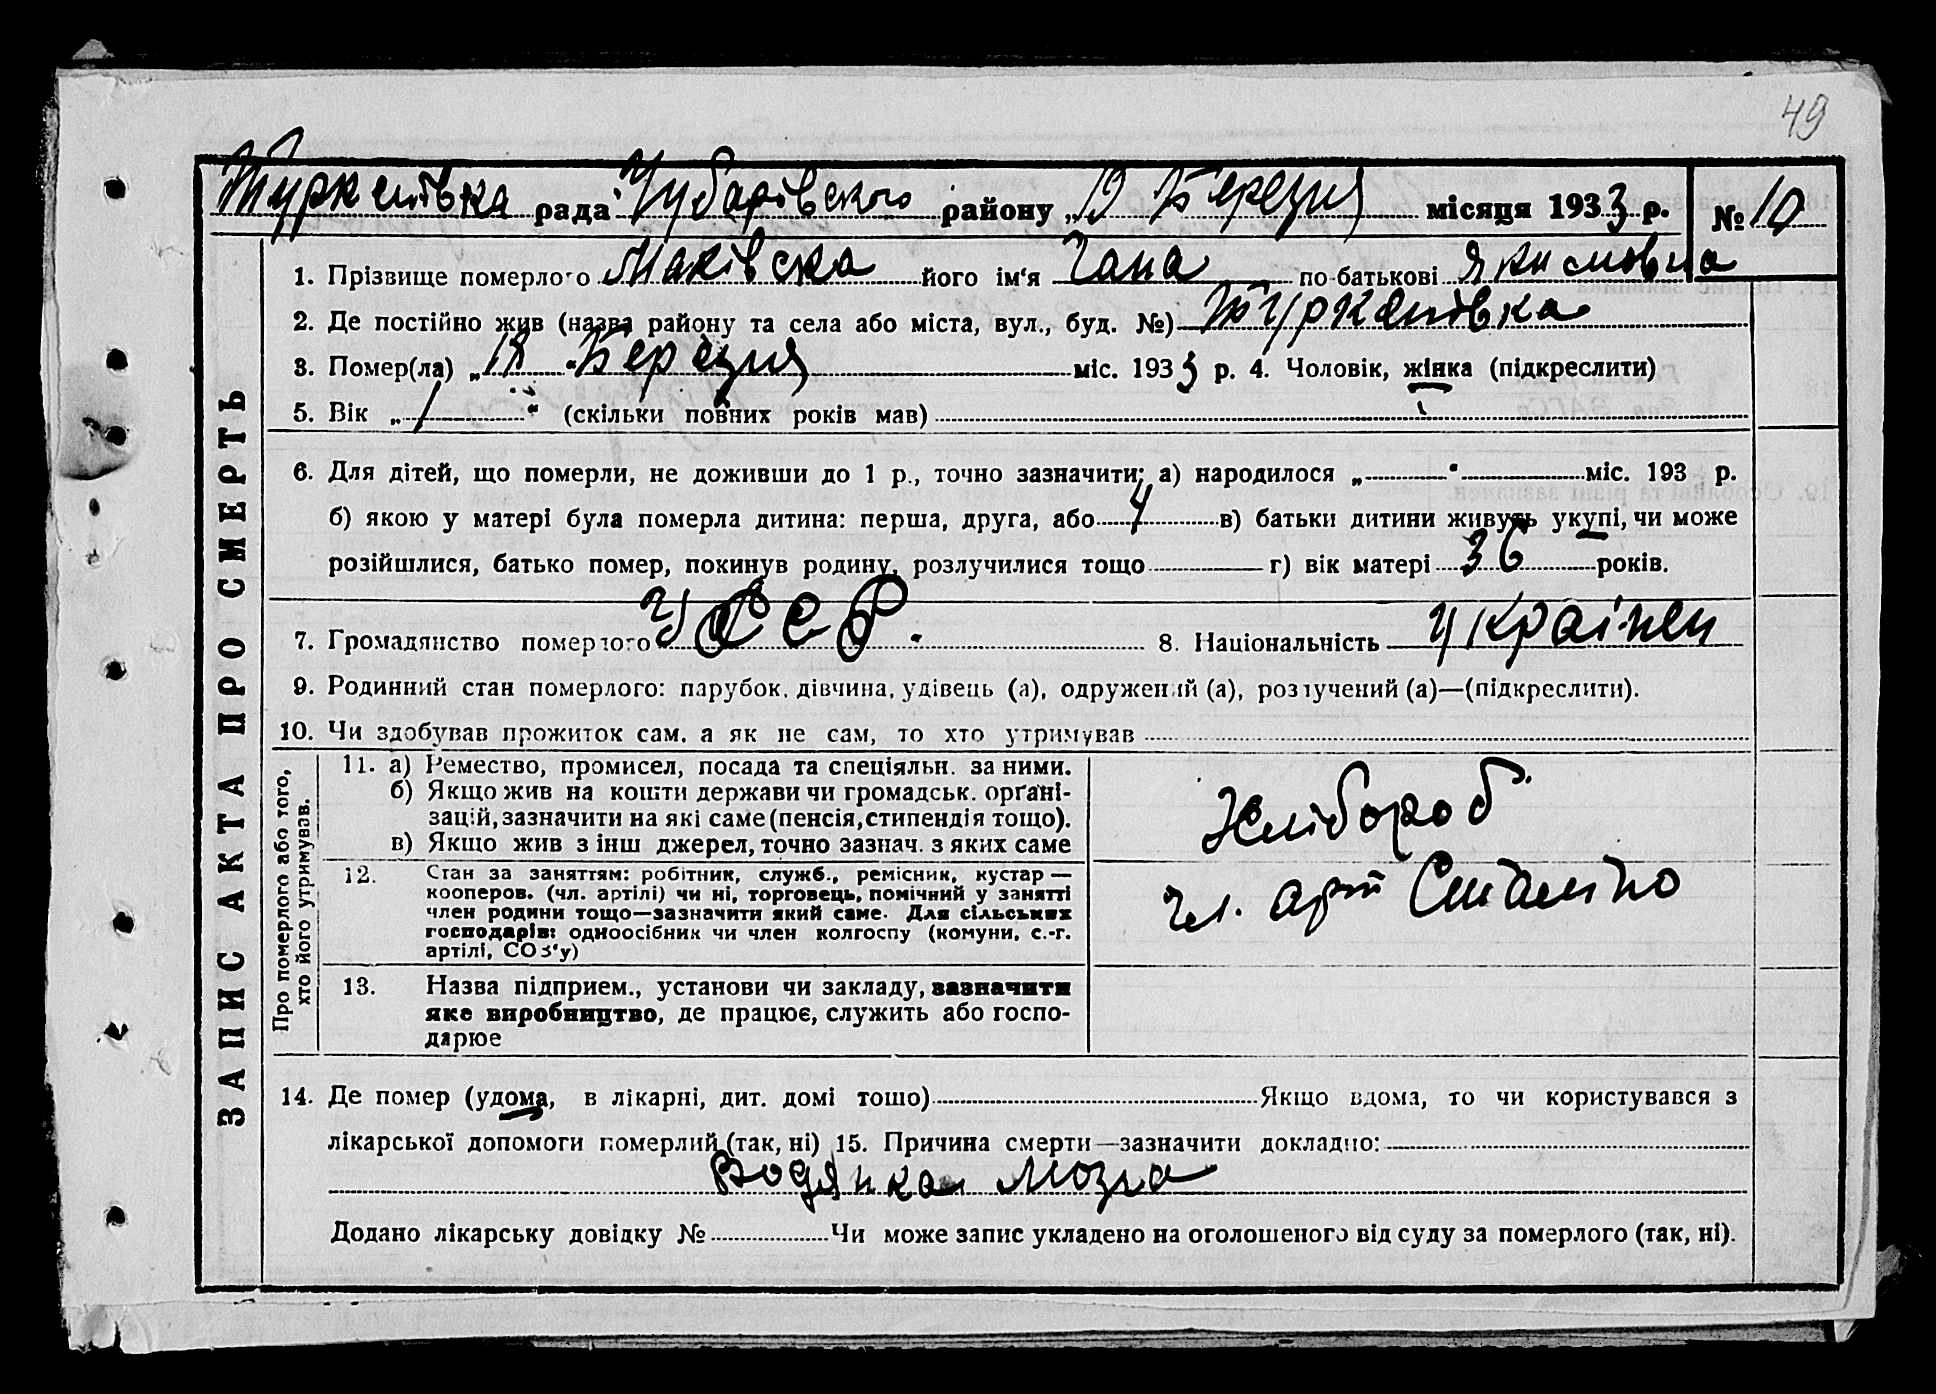 49
Туркенівка рада Чубарівського району „19 Березня місяця 1933 р. № 10
1. Прізвище померлого Маківська його ім'я Гана по-батькові Якимовна
2. Де постійно жив (назва району та села або міста, вул., буд. №) Туркенівка
3. Помер(ла) „18 " Березня міс. 1933 р. 4. Чоловік, жінка (підкреслити)
5. Вік „ 1 " (скільки повних років мав)
6. Для дітей, що померли, не доживши до 1 р., точно зазначити: а) народилося „ " міс. 193 р.
б) якою у матері була померла дитина: перша, друга, або 4 в) батьки дитини живуть укупі, чи може
розійшлися, батько помер, покинув родину, розлучилися тощо г) вік матері 36 років.
7. Громадянство померлого УССР. 8. Національність Украінец
9. Родинний стан померлого: парубок, дівчина, удівець (а), одружений (а), розлучений (а)—(підкреслити).
10. Чи здобував прожиток сам, а як не сам, то хто утримував
ЗАПИС АКТА ПРО СМЕРТЬ
Про померлого або того,
хто його утримував.
11. а) Ремество, промисел, посада та спеціяльн. за ними.
б) Якщо жив на кошти держави чи громадськ. орґані-
зацій, зазначити на які саме (пенсія, стипендія тощо).
в) Якщо жив з інш джерел, точно зазнач. з яких саме
Хлібороб
12. Стан за заняттям: робітник, служб., ремісник, кустар —
кооперов. (чл. артілі) чи ні, торговець, помічний у занятті
член родини тощо—зазначити який саме. Для сільських
господарів: одноосібник чи член колгоспу (комуни, с.-г.
артілі, СОЗ'у)
чл. арт
13. Назва підприєм., установи чи закладу, зазначити
яке виробництво, де працює, служить або госпо-
дарює
14. Де помер (удома, в лікарні, дит. домі тощо) Якщо вдома, то чи користувався з
лікарської допомоги померлий (так, ні) 15. Причина смерти—зазначити докладно:
Водянка мозга
Додано лікарську довідку № Чи може запис укладено на оголошеного від суду за померлого (так, ні).